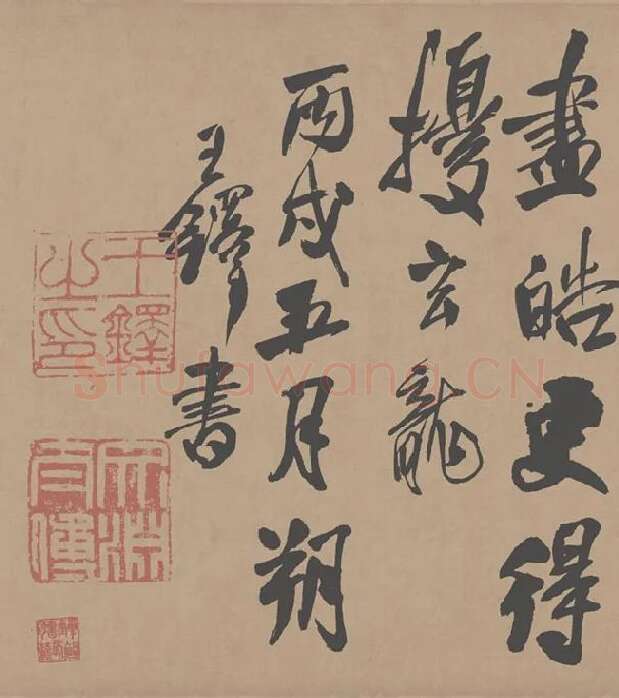 盡皓更得
擾玄龍
丙戌五月朔
王鐸書
王鐸之印
Shufawang.CN